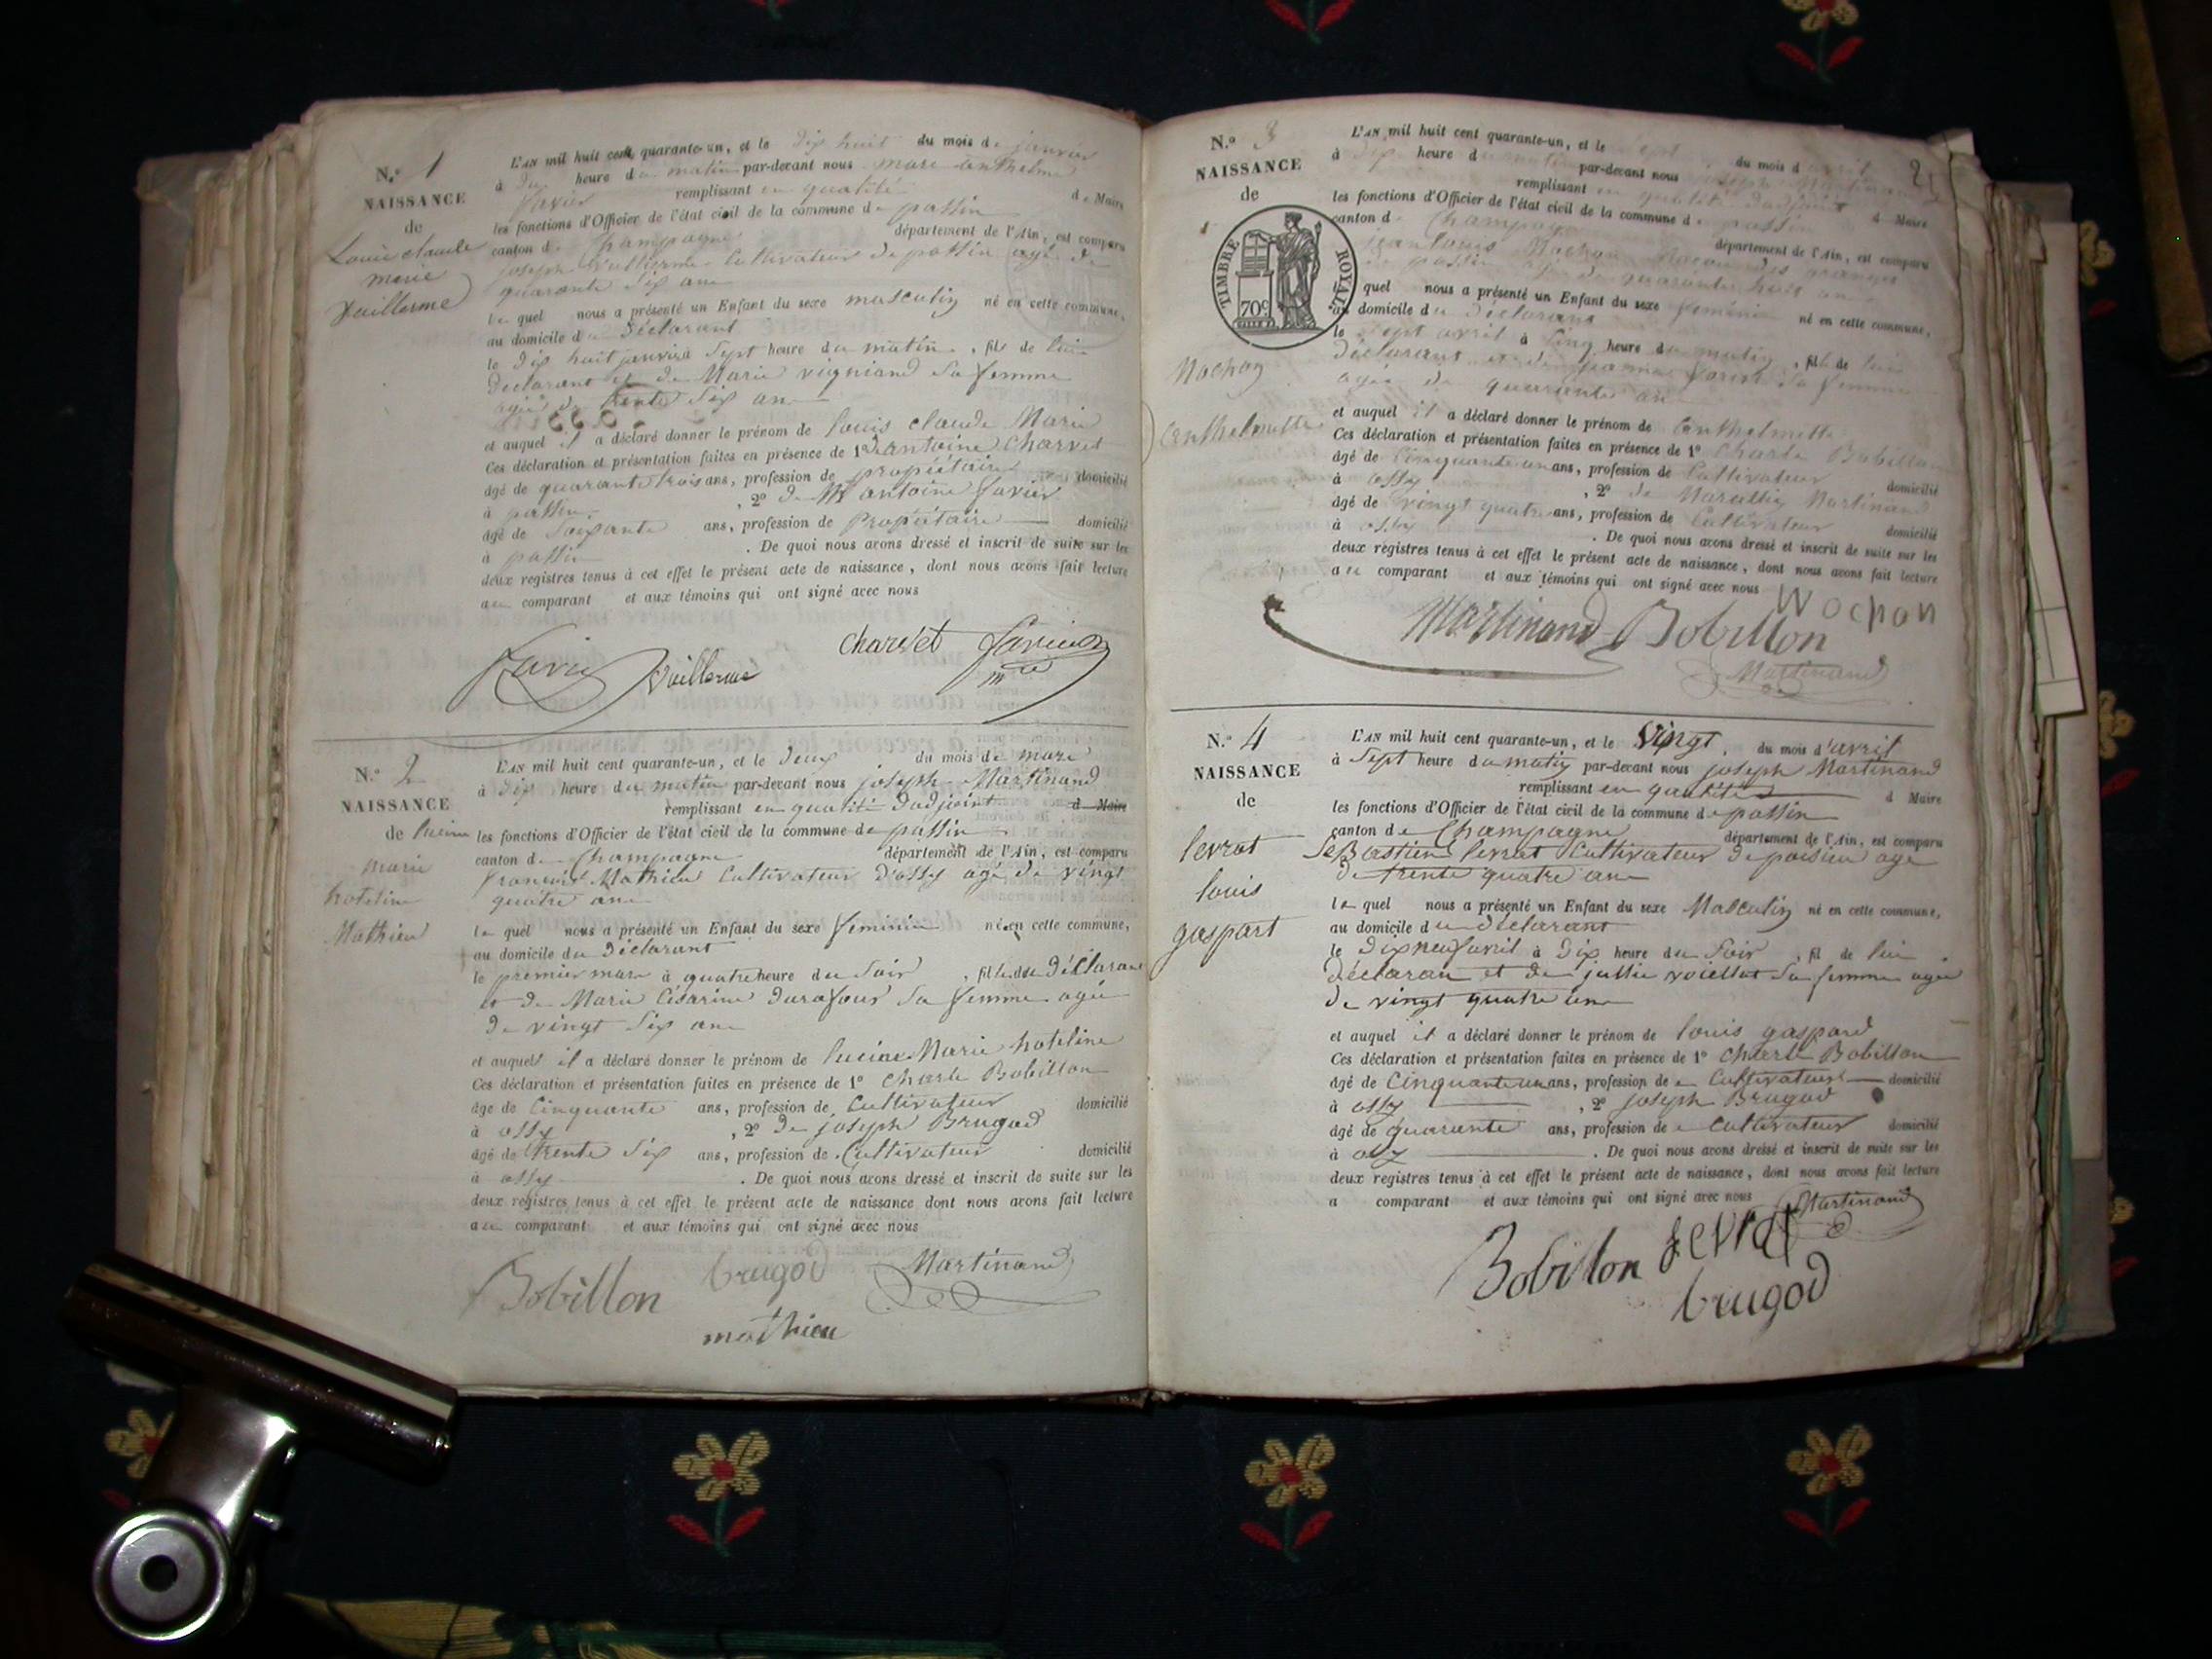 N.° 1
NAISSANCE
de
Louis claude
marie
Vuillerme
L'AN mil huit cent quarante-un, et le dix huit du mois de janvier
à dix heure du matin par-devant nous marc anthelme
Favier remplissant en qualité de Maire
les fonctions d'Officier de l'état civil de la commune de passin
canton de Champagne département de l'Ain, est comparu
joseph Vuillerme Cultivateur de passin agé de
quarante six ans
le quel nous a présenté un Enfant du sexe masculin né en cette commune,
au domicile du Déclarant
le dix huit janvier à sept heure du matin, fils de lui
Déclarant et de Marie vugniand sa femme
agée de trente six ans
et auquel il a déclaré donner le prénom de louis claude Marie
Ces déclaration et présentation faites en présence de 1° antoine Charvet
âgé de quarante trois ans, profession de propriétaire domicilié
à passin, 2° de antoine favier
âgé de soixante ans, profession de Propriétaire domicilié
à passin. De quoi nous avons dressé et inscrit de suite sur les
deux registres tenus à cet effet le présent acte de naissance, dont nous avons fait lecture
au comparant et aux témoins qui ont signé avec nous
charvet Favier
Favier Vuillerme
N.° 2
NAISSANCE
de lucine
marie
hoteline
Mathieu
L'AN mil huit cent quarante-un, et le deux du mois de mars
à dix heure du matin par-devant nous joseph Martinand
remplissant en qualité d'adjoint d Maire
les fonctions d'Officier de l'état civil de la commune de passin
canton de Champagne département de l'Ain, est comparu
françois Mathieu Cultivateur d'ossy agé de vingt
quatre ans
le quel nous a présenté un Enfant du sexe feminin né en cette commune,
au domicile du Déclarant
le premier mars à quatre heure du soir, fille du Déclarant
et de Marie Césarine durafour sa femme agée
de vingt six ans
et auquel il a déclaré donner le prénom de lucine Marie hoteline
Ces déclaration et présentation faites en présence de 1° Charle Bobillon
âgé de Cinquante ans, profession de Cultivateur domicilié
à ossy, 2° de joseph Brugod
âgé de trente six ans, profession de Cultivateur domicilié
à ossy. De quoi nous avons dressé et inscrit de suite sur les
deux registres tenus à cet effet le présent acte de naissance dont nous avons fait lecture
au comparant et aux témoins qui ont signé avec nous
Bobillon brugod Martinand
mathieu
2
N.° 3
NAISSANCE
de
TIMBRE ROYAL
70c
Wochon
anthelmette
L'AN mil huit cent quarante-un, et le sept du mois d avril
à dix heure du matin par-devant nous joseph Martinand
remplissant en qualité d'adjoint d Maire
les fonctions d'Officier de l'état civil de la commune de passin
canton de Champagne département de l'Ain, est comparu
jean louis Wochon
de passin agé de quarante huit ans
quel nous a présenté un Enfant du sexe féminin né en cette commune,
au domicile du Déclarant
le sept avril à cinq heure du matin, fille de lui
Déclarant et de sa femme
agée de quarante ans
et auquel il a déclaré donner le prénom de anthelmette
Ces déclaration et présentation faites en présence de 1° Charle Bobillon
âgé de Cinquante un ans, profession de Cultivateur domicilié
à ossy, 2° de Martinand
âgé de vingt quatre ans, profession de Cultivateur domicilié
à ossy. De quoi nous avons dressé et inscrit de suite sur les
deux registres tenus à cet effet le présent acte de naissance, dont nous avons fait lecture
au comparant et aux témoins qui ont signé avec nous Wochon
Martinand Bobillon
Martinand
N.° 4
NAISSANCE
de
levrat
louis
gaspart
L'AN mil huit cent quarante-un, et le vingt, du mois d'avril
à sept heure du matin par-devant nous joseph Martinand
remplissant en qualité d Maire
les fonctions d'Officier de l'état civil de la commune de passin
canton de Champagne département de l'Ain, est comparu
seBastien levrat Cultivateur de poisieu agé
de trente quatre ans
le quel nous a présenté un Enfant du sexe Masculin né en cette commune,
au domicile du déclarant
le dixneuf avril à Dix heure du soir, fil de lui
déclaran et de jullie voiellat sa femme agée
de vingt quatre ans
et auquel il a déclaré donner le prénom de louis gaspard
Ces déclaration et présentation faites en présence de 1° Charle Bobillon
âgé de Cinquante un ans, profession de Cultivateur domicilié
à ossy, 2° joseph Brugod
âgé de quarante ans, profession de Cultivateur domicilié
à ossy. De quoi nous avons dressé et inscrit de suite sur les
deux registres tenus à cet effet le présent acte de naissance, dont nous avons fait lecture
a comparant et aux témoins qui ont signé avec nous Martinand
Bobillon levrat
brugod